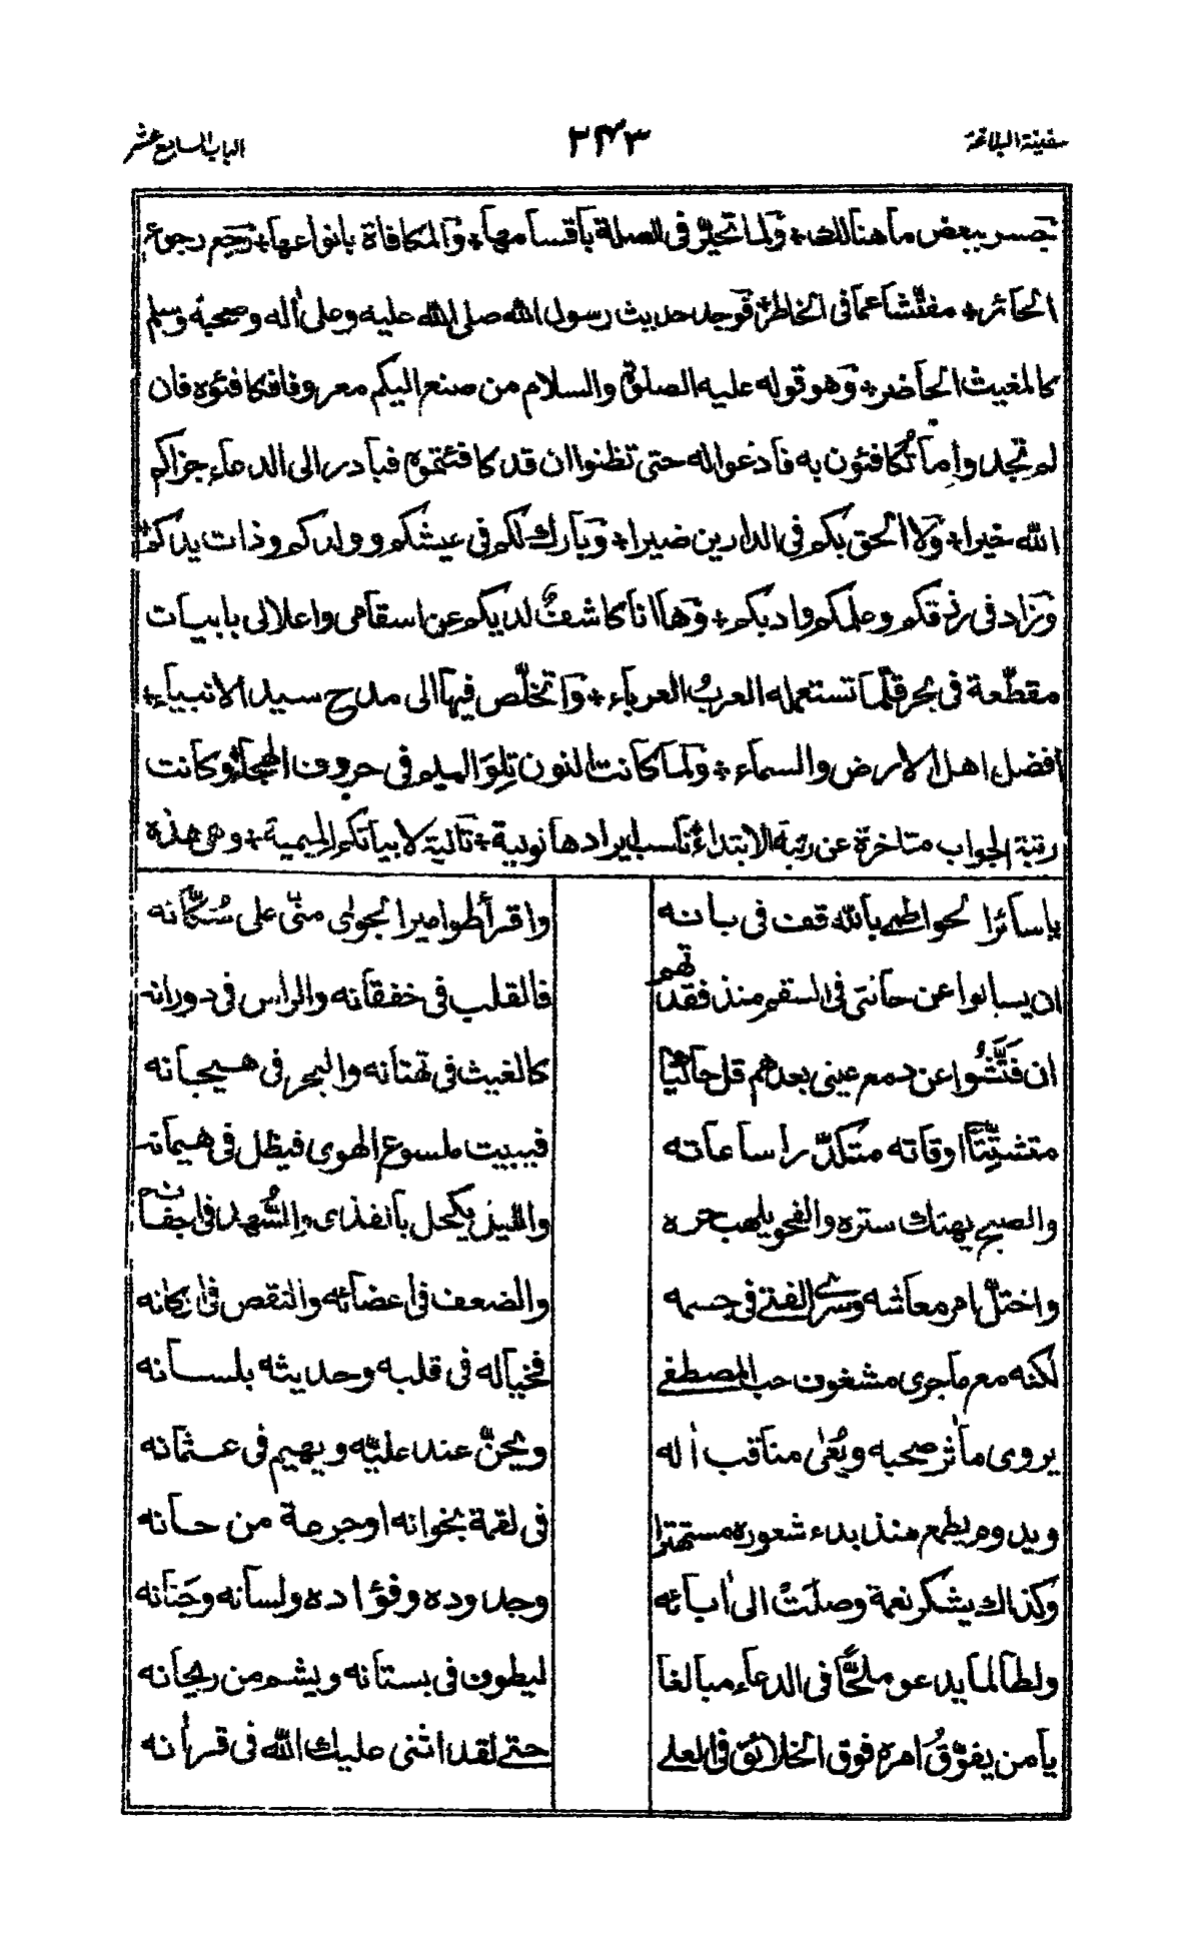 سفينة البلاغة ٢٤٣ الباب السابع عشر
تجسر ببعض ما هنالك + ولما تحير في الصلة بأقسامها + والمكافاة بانواعها + رجع رجوع
الحائر + مفتشا عما في الخاطر + فوجد حديث رسول الله صلى الله عليه وعلى أله وصحبه وسلم
كالمغيث الحاضر + وهو قوله عليه الصلوة والسلام من صنع اليكم معروفا فكافئوه فان
لم تجدوا ما تُكافئون به فادعوا له حتى تظنوا ان قد كافئتموه فبادر الى الدعاء جزاكم
الله خيرا + ولا الحق بكم في الدارين ضيرا + وبارك لكم في عيشكم وولدكم وذات يدكم
وزاد في رزقكم وعلمكم وادبكم + وها انا كاشفٌ لديكم عن اسقامى واعلالى بابيات
مقطّعة في بحر قلّما تستعمله العربُ العرباء + واتخلّص فيها الى مدح سيد الانبياء +
افضل اهل الارض والسماء + ولما كانت النون تِلوَ الميم في حروف الهجاء + وكانت
رتبة الجواب متاخرة عن رتبة الابتداء ناسب ايرادها نونية + تالية لابياتكم الميمية + وهى هذه
ياسائرا لحواطم بالله قف في بانه واقرأ طوامير الجوى منّى على سُكّانه
ان يسالوا عن حالتى في السقم منذ فقدتهم فالقلب في خفقانه والراس في دورانه
ان فَتَّشُوا عن دمع عينى بعدهم قل حاكيا كالغيث في تهتانه والبحر في هيجانه
متشتِّتًا اوقاته متكدّر اساعاته فيبيت ملسوع الهوى فيظل في هيمانه
والصبح يهتك ستره والفجر يلهب حره والليل يكحل بالقذى والسُّهد في اجفانه
واختلّ امر معاشه وسرى الفتى في جسمه والضعف في أعضائه والنقص في اركانه
لكنه مع ماجرى مشغوف حب المصطفى فخياله في قلبه وحديثه بلسانه
يروى مأثر صحبه ويُعلى مناقب أله ويحنّ عند عليّه ويهيم في عثمانه
ويدوم يطمع منذ بدء شعوره مستهترا في لقمة بخوانه اوجرعة من حانه
وكذاك يشكر نعمة وصلَتْ الى أبائه وجدوده وفؤاده ولسانه وجَنانه
ولطالما يدعو ملحًّا في الدعاء مبالغا ليطوف في بستانه ويشم من ريحانه
يامن يفوّقُ امره فوق الخلائق في العلى حتى لقد اثنى عليك الله في قرأنه